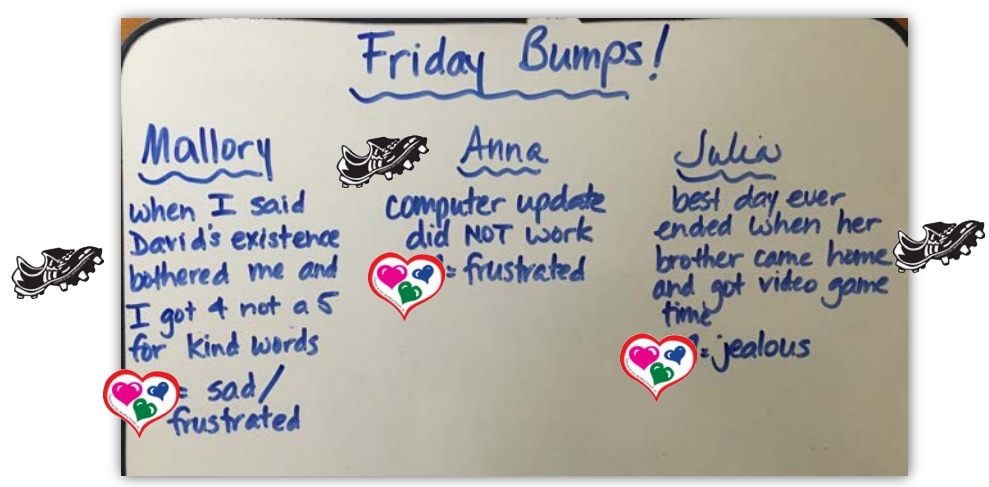 Friday Bumps!
Mallory
when I said
David's existence
bothered me and
I got 4 not a 5
for kind words
= sad/
frustrated
Anna
computer update
did NOT work
= frustrated
Julia
best day ever
ended when her
brother came home
and got video game
time
= jealous